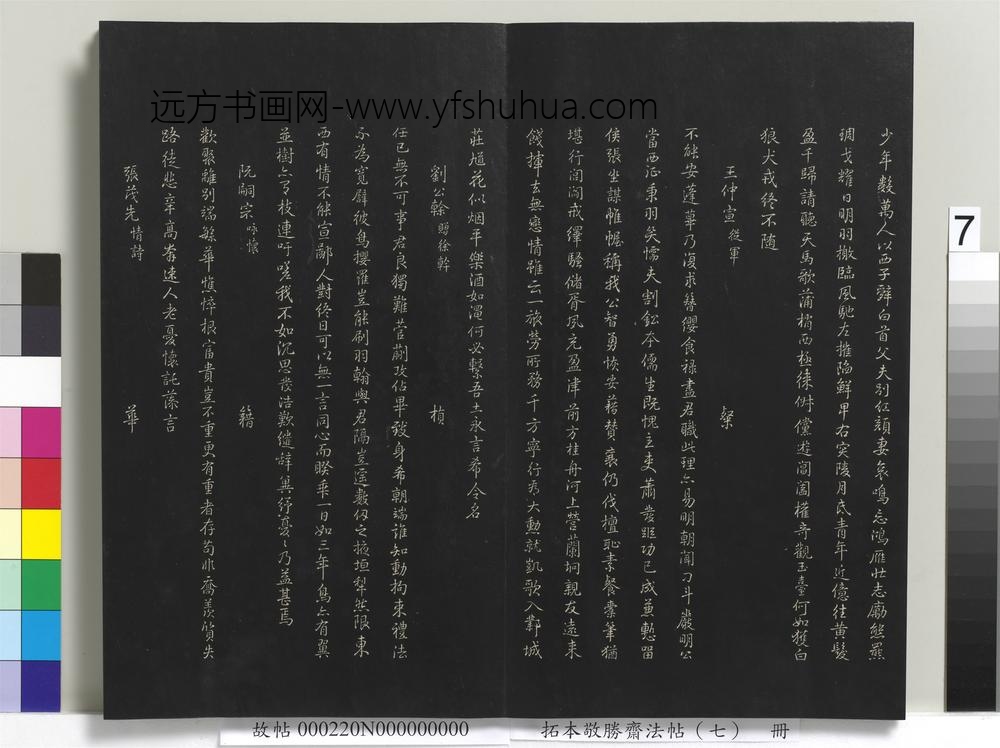 远方书画网-www.yfshuhua.com
少年數萬人以西子辭白首父夫別紅顏妻哀鳴忘鴻雁壯志勵熊羆
琱戈耀日明羽檄臨風馳左摧陷鮮卑右突陵月底青年近億往黃髮
盈千歸請聽天馬歌蒲梢西極徠儻遊閶闔權奇觀玉臺何如獲白
狼犬戎終不隨
王仲宣從軍 粲
不能安蓬蓽乃復求簪纓食祿盡君職此理亦易明朝聞刁斗嚴明公
當西征秉羽矣懦夫割鉛本儒生既愧立吏蕭發蹤功已成兼慙留
侯張坐謀帷幄稱我公智勇恢安藉贊襄仍伐檀恥素餐橐筆猶
堪行閭閻戒繹騷儲胥夙充盈津前方桂舟河上營蘭坰親友遠來
餞揮玄無戀情雖云一旅勞所務千方寧行矣大勳就凱歌入鄴城
莊馗花似烟平樂酒如澠何必繫吾土永言希令名
劉公幹贈徐幹 楨
任已無不可事君良獨難菅蒯改佔畢致身希朝端誰知動拘束禮法
不為寬辟彼鳥攖羅豈能刷羽翰與君隔豈遙數仞之掖垣犁然限東
西有情不能宣鄙人對終日可以無一言同心而睽乖一日如三年鳥亦有翼
並樹亦有枝連吁嗟我不如沉思發浩歎繾辭異紓憂憂乃益甚焉
阮嗣宗詠懷 籍
歡聚離別端繁華憔悴根富貴豈不重更有重者存苟非喬羨質失
路徒悲辛高岑速人老憂懷託藻言
張茂先情詩 華
7
故帖 000220N000000000 拓本敬勝齋法帖（七） 冊